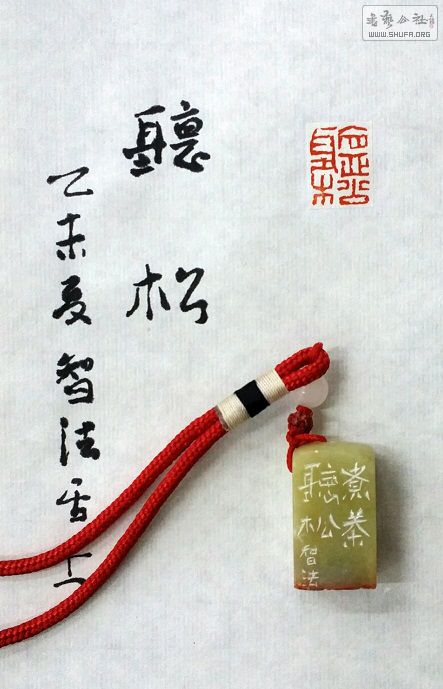 書藝公社
WWW.SHUFA.ORG
聽松
聽松
乙未夏智法居士
煮茶
聽松
智法